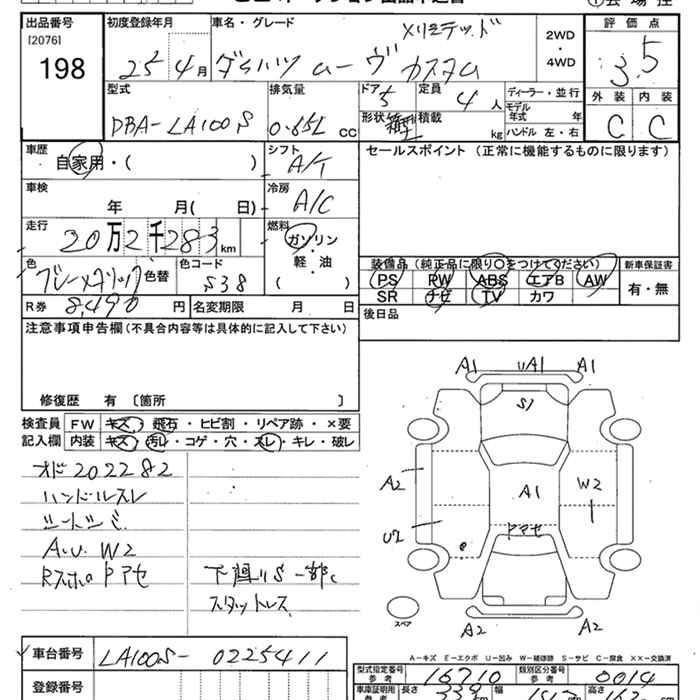 出品番号 初度登録年月 車名・グレード 評価点
[2076]
198
25 4月 ダイハツ ムーヴ カスタム 2WD・4WD 3.5
外装 内装
C C
型式 排気量 ドア 5 定員 4人 ディーラー・並行
DBA-LA100S 0.65L CC 形状 箱型 積載 kg モデル年式 年
ハンドル 左・右
車歴 シフト セールスポイント (正常に機能するものに限ります)
自家用・( ) A/T
車検 冷房
年 月( 日) A/C
走行 燃料
20万2千283km ガソリン
軽・油
( )
色 色替 色コード
グレーメタリック S38
装備品 (純正品に限り○をつけてください) 新車保証書
PS PW ABS エアB AW 有・無
SR ナビ TV カワ
R券 8,490円 名変期限 月 日 後日品
注意事項申告欄 (不具合内容等は具体的に記入して下さい)
修復歴 有 〔箇所 〕
検査員 FW キズ・飛石・ヒビ割・リペア跡・×要
記入欄 内装 キズ・汚レ・コゲ・穴・スレ・キレ・破レ
オド202282
ハンドルスレ
シートシミ
A.U. W2
下廻りS一部C
スタットレス
A1 UA1 A1
S1
A2 A1 W2
U2
A2 A2
スペア
A-キズ E-エクボ U-凹み W-補修跡 S-サビ C-腐食 XX-交換済
車台番号 LA100S-0225411
登録番号
型式指定番号 参考 16710 類別区分番号 参考 0014
車庫証明用 長さ 339 幅 高さ